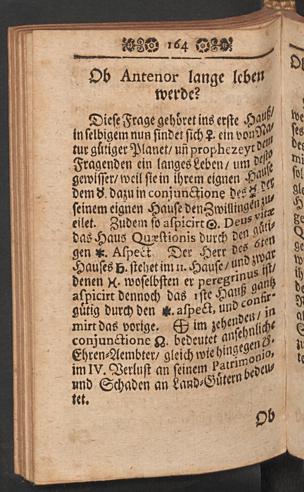 164
Ob Antenor lange leben
werde?
Diese Frage gehöret ins erste Hauß/
in selbigem nun findet sich ♀. ein von Na-
tur gütiger Planet/ uñ prophezeyt dem
Fragenden ein langes Leben/ um desto
gewisser/ weil sie in ihrem eignen Hause
dem ♉. dazu in conjunctione des ☿ der
seinem eignen Hause den Zwillingen zu-
eilet. Zudem so aspicirt ☉. Deus vitæ
das Haus Quæstionis durch den güti-
gen ✶. Aspect. Der Herr des 6ten
Hauses ♄. stehet im 11. Hause/ und zwar
denen ♓. woselbsten er peregrinus ist/
aspicirt dennoch das 1ste Hauß gantz
gütig durch den ✶. aspect, und confir-
mirt das vorige. ⊕ im zehenden/ in
conjunctione ☊. bedeutet ansehnliche
Ehren-Aembter/ gleich wie hingegen ☋.
im IV. Verlust an seinem Patrimonio,
und Schaden an Land-Gütern bedeu-
tet.
Ob